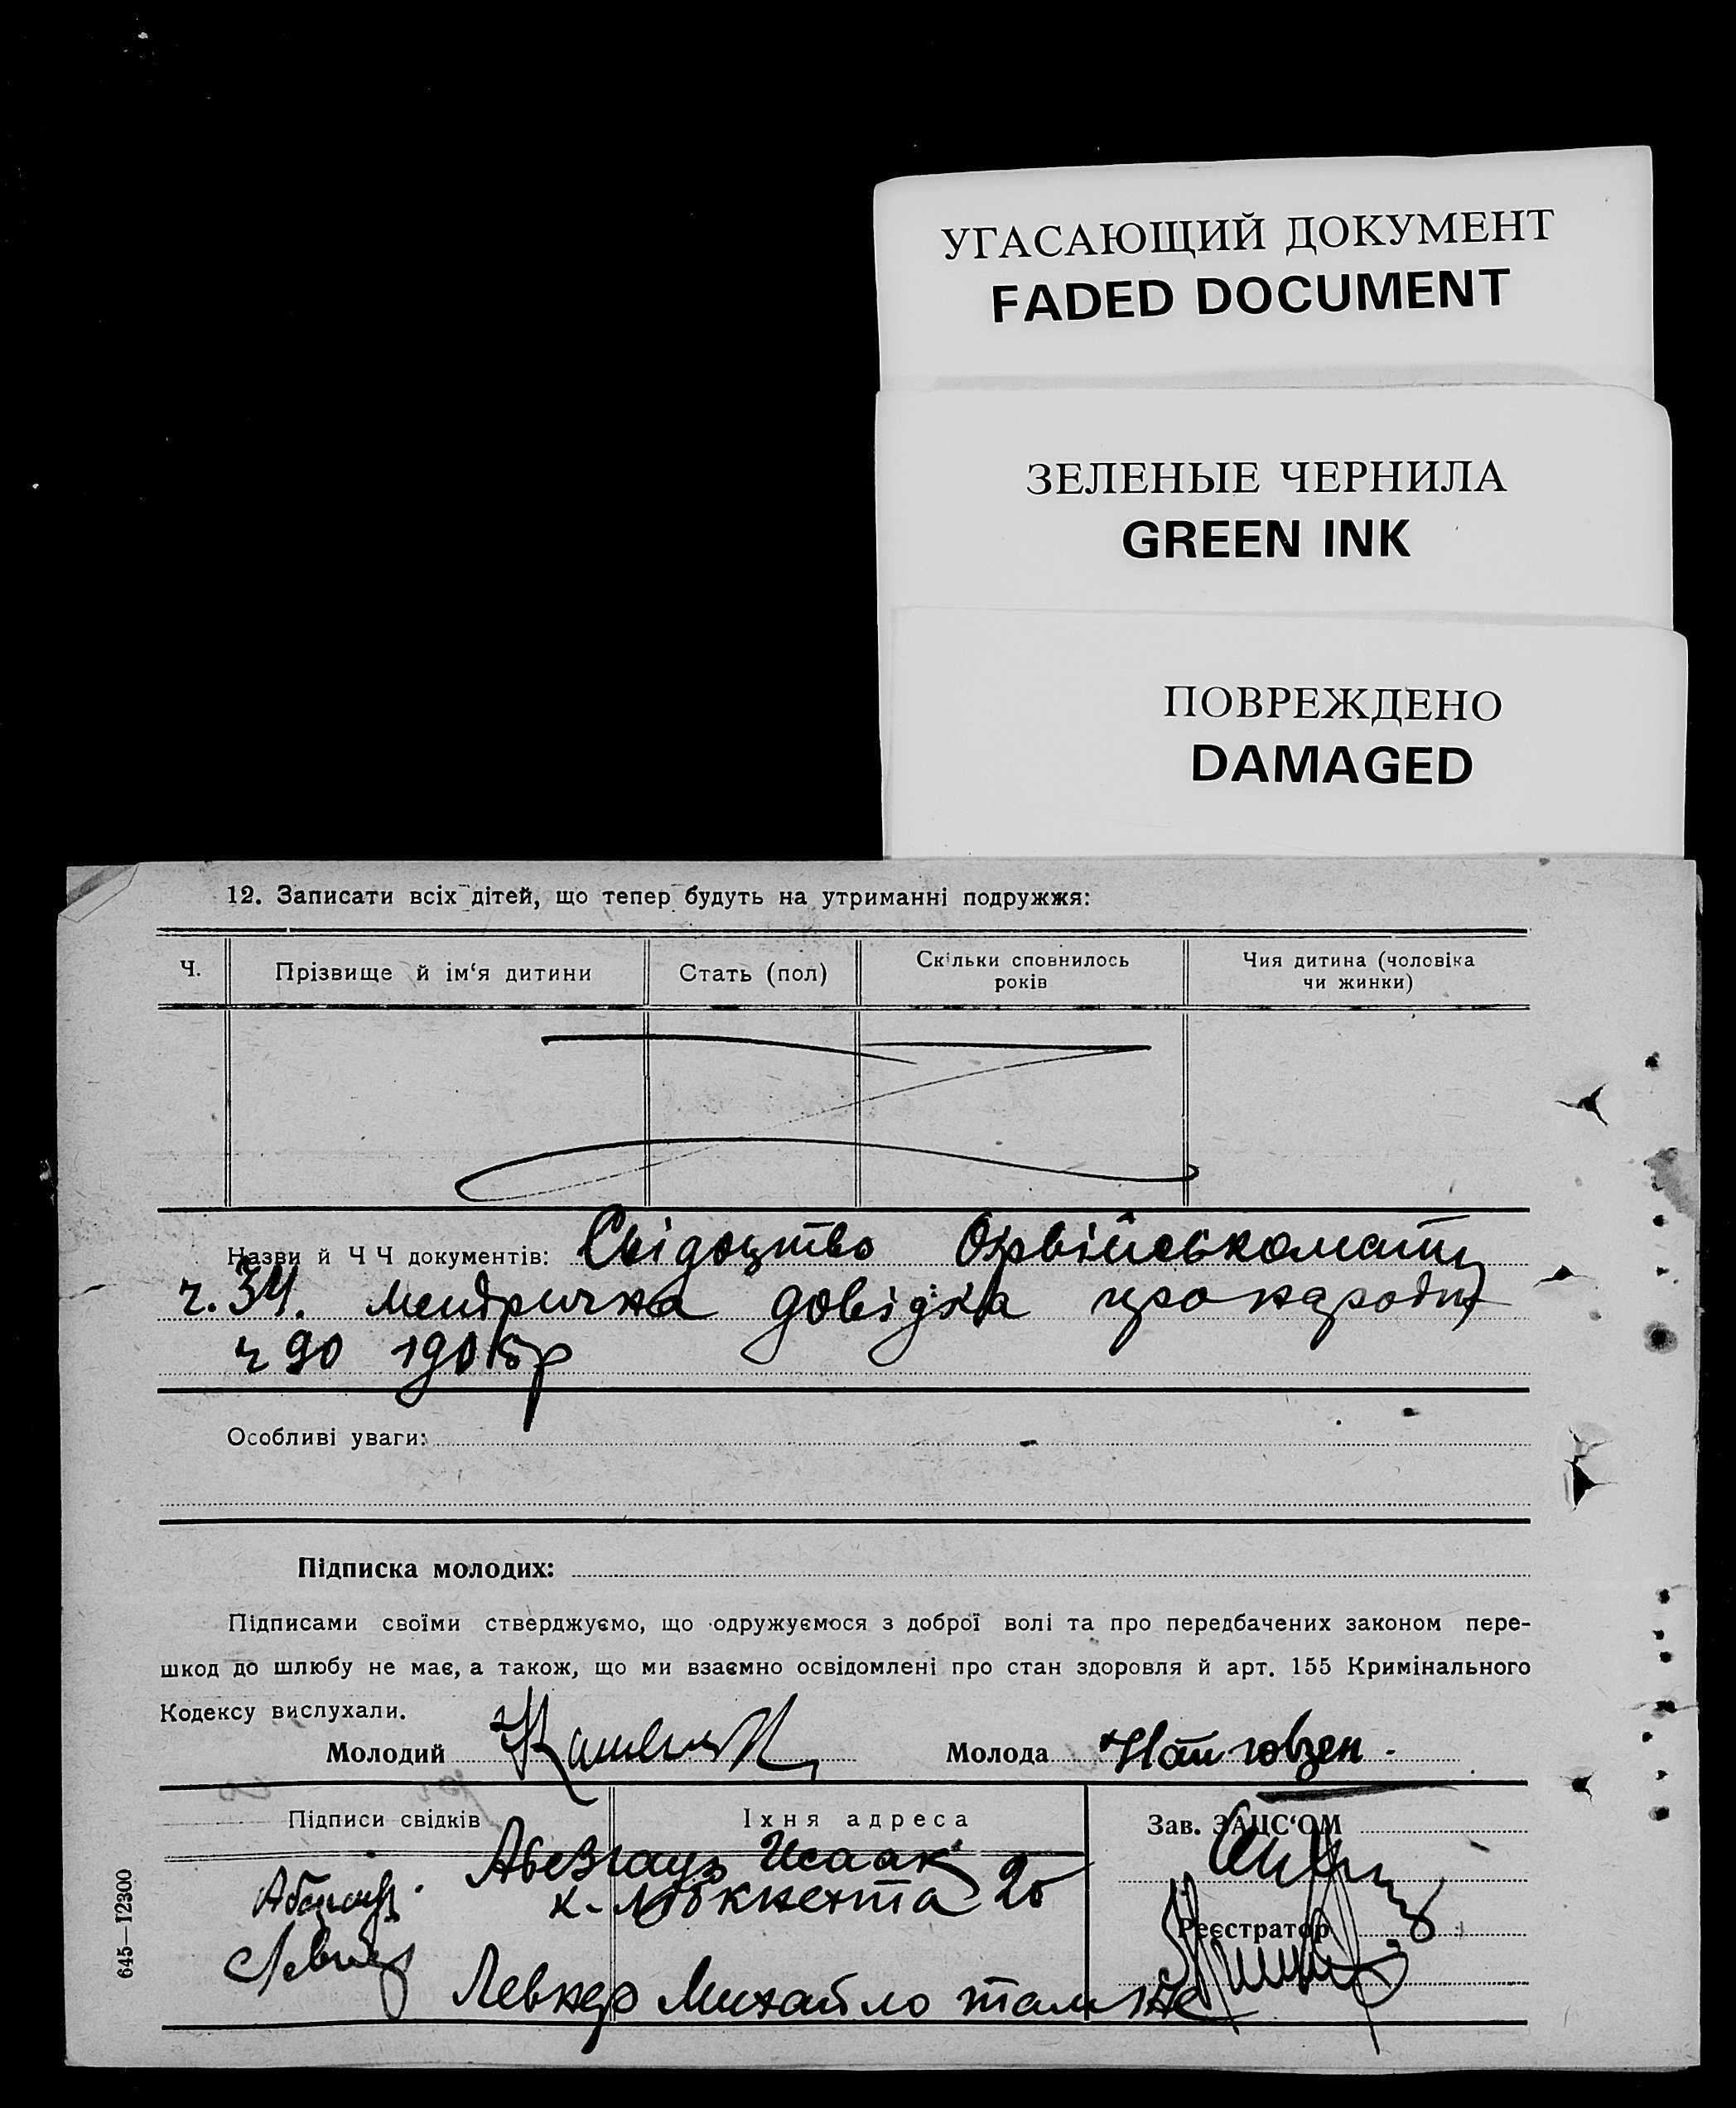 УГАСАЮЩИЙ ДОКУМЕНТ
FADED DOCUMENT
ЗЕЛЕНЫЕ ЧЕРНИЛА
GREEN INK
ПОВРЕЖДЕНО
DAMAGED
12. Записати всіх дітей, що тепер будуть на утриманні подружжя:
Ч. Прізвище й ім‘я дитини Стать (пол) Скільки сповнилось років Чия дитина (чоловіка чи жинки)
Назви й Ч Ч документів: Свідоцтво Окрвійськомату
ч. 34. Метрична довідка про народж
ч 90
Особливі уваги:
Підписка молодих:
Підписами своїми стверджуємо, що одружуємося з доброї волі та про передбачених законом пере-
шкод до шлюбу не має, а також, що ми взаємно освідомлені про стан здоровля й арт. 155 Кримінального
Кодексу вислухали.
Молодий Молода
Підписи свідків Їхня адреса Зав. ЗАЦС‘ОМ
Абезгауз Исаак
20
Реєстратор
Левнер Михайло там же
645—12300